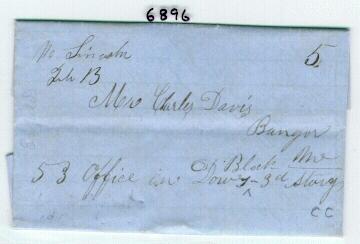 6896
No. Lincoln
Feb 13
5
Mr Charles Davis
Bangor
Me
53 Office in Block - 3d Story
CC